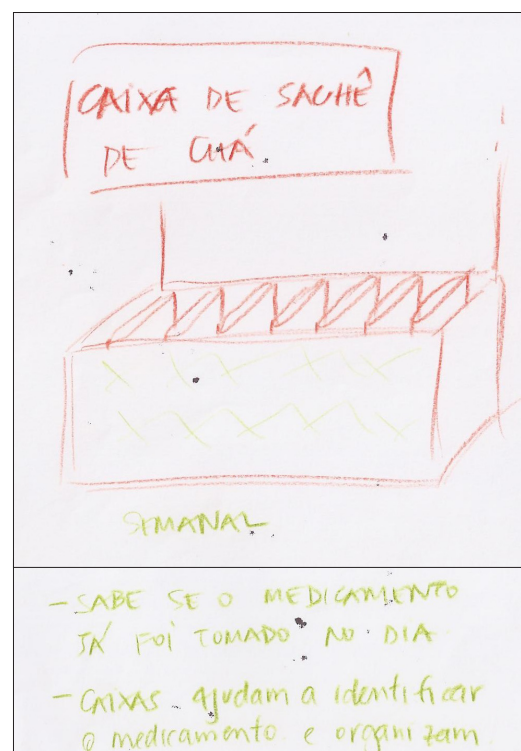 CAIXA DE SACHÊ
DE CHÁ
SEMANAL
- SABE SE O MEDICAMENTO
JÁ FOI TOMADO NO DIA
- CAIXAS Ajudam a identificar
o medicamento e organizam